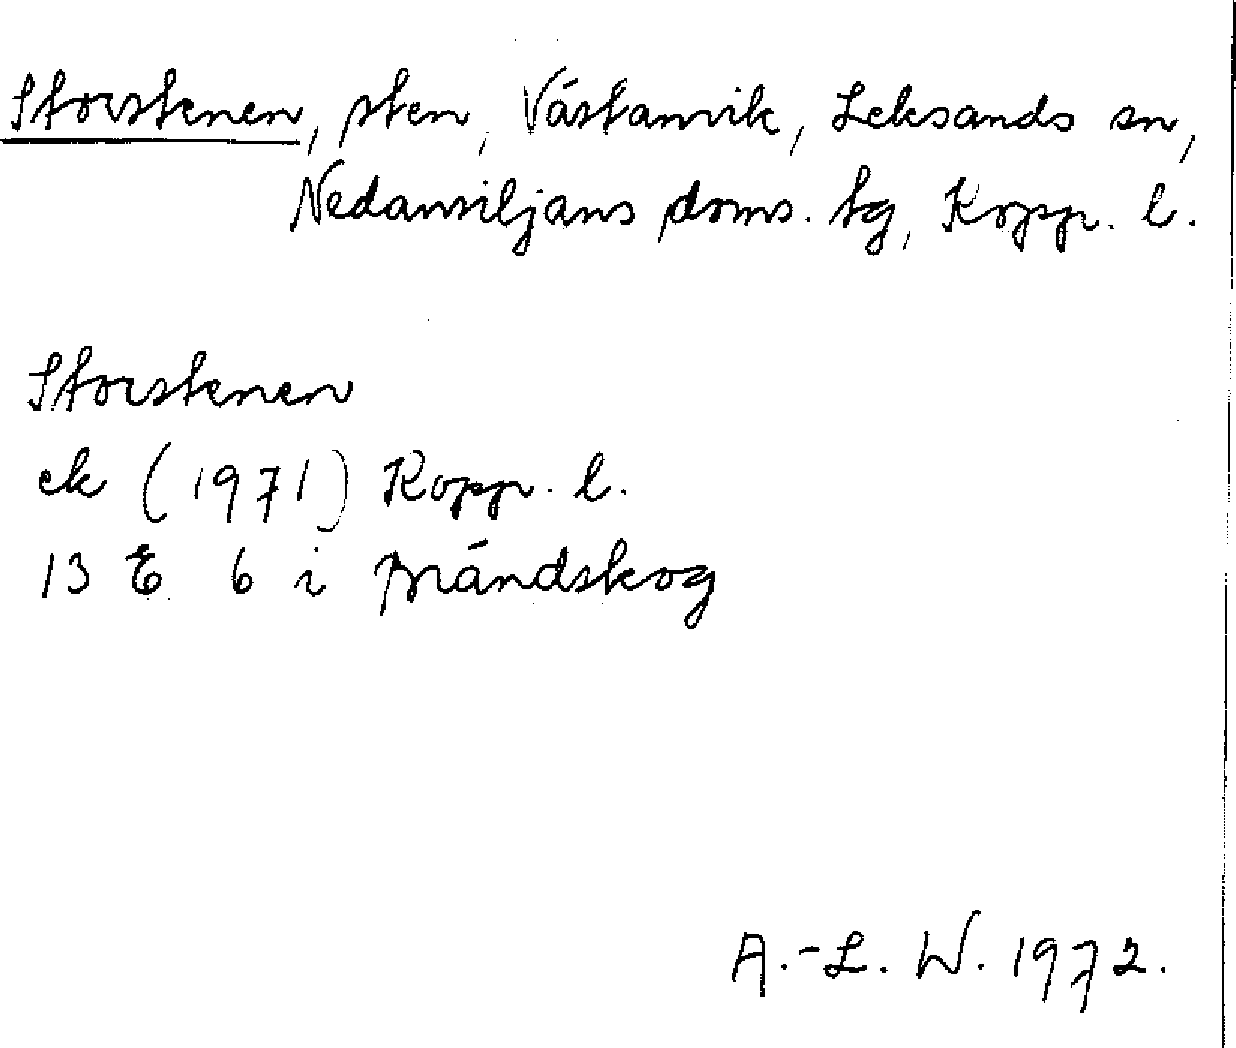 Storstenen, sten, Västanvik, Leksands sn,
Nedansiljans doms. tg, Kopp. l.
Storstenen
ek (1971) Kopp. l.
13 E 6 i Brändskog
A.-L. W. 1972.